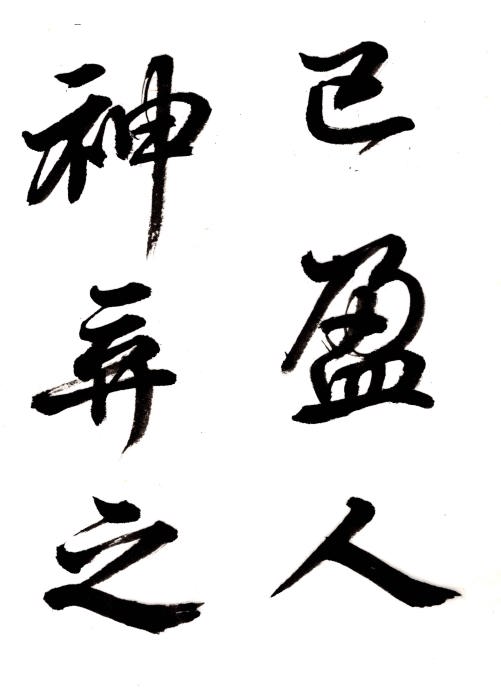 已盈人
神弃之